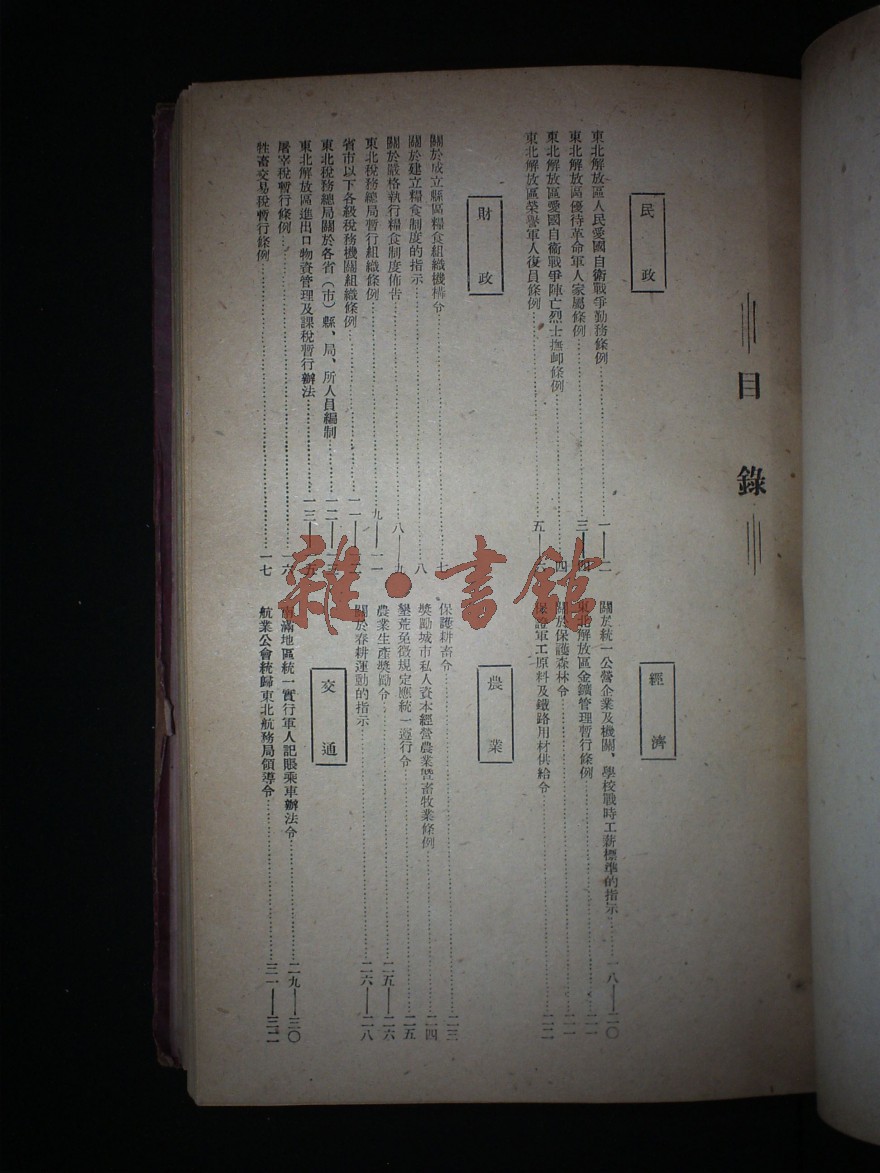 目錄
民政
東北解放區人民愛國自衛戰爭勤務條例……一——二
東北解放區優待革命軍人家屬條例……三——四
東北解放區愛國自衛戰爭陣亡烈士撫卹條例……四
東北解放區榮譽軍人復員條例……五——六
財政
關於成立縣區糧食組織機構令……七
關於建立糧食制度的指示……八
關於嚴格執行糧食制度佈告……八——九
東北稅務總局暫行組織條例……九——一一
省市以下各級稅務機關組織條例……一一——一二
東北稅務總局關於各省(市)縣、局、所人員編制……一二——一三
東北解放區進出口物資管理及課稅暫行辦法……一三——一五
屠宰稅暫行條例……一六
牲畜交易稅暫行條例……一七
經濟
關於統一公營企業及機關、學校戰時工薪標準的指示……一八——二〇
東北解放區金鑛管理暫行條例……二一
關於保護森林令……二一
保證軍工原料及鐵路用材供給令……二二
農業
保護耕畜令……二三
獎勵城市私人資本經營農業暨畜牧業條例……二四
墾荒免徵規定應統一遵行令……二五
農業生產獎勵令……二五——二六
關於春耕運動的指示……二六——二八
交通
南滿地區統一實行軍人記賬乘車辦法令……二九——三〇
航業公會統歸東北航務局領導令……三一——三二
雜·書館